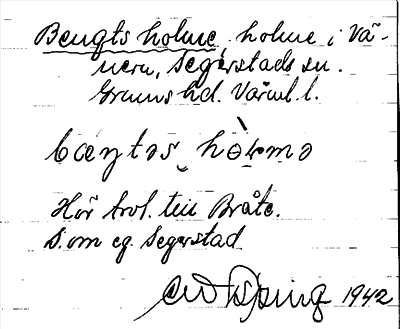 Bengts holme, holme i Vä-
nern, Segerstads sn.
Grums hd. Värml. l.
bæŋtəs hòlmə
Hör trol. till Bråte.
S. om eg. Segerstad
1942